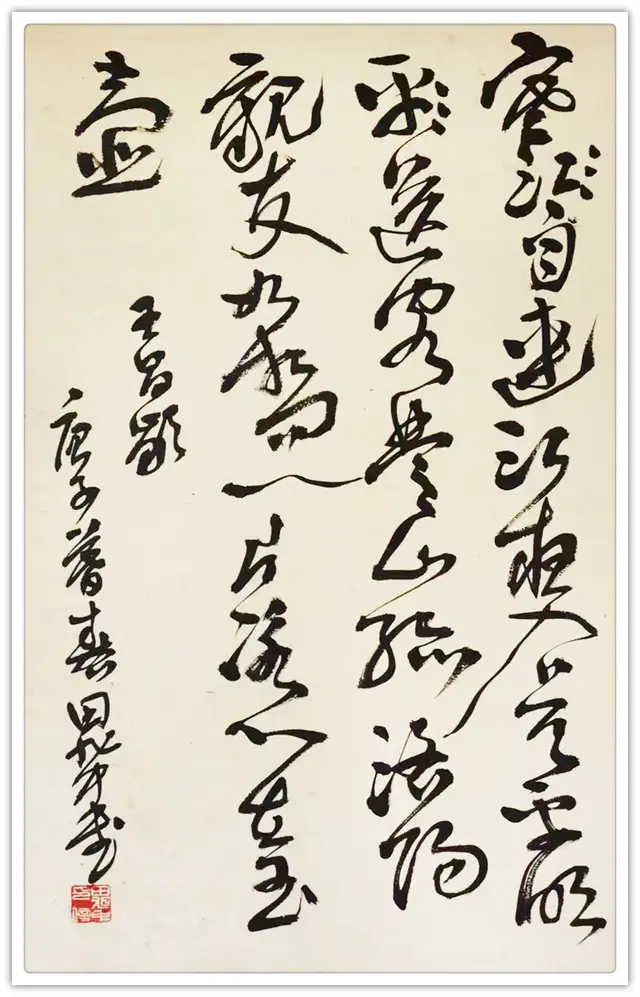 寒連江夜入吴平明
送客楚山孤洛陽
親友如相問一片冰心在玉
壺
王昌齡
庚子暮春